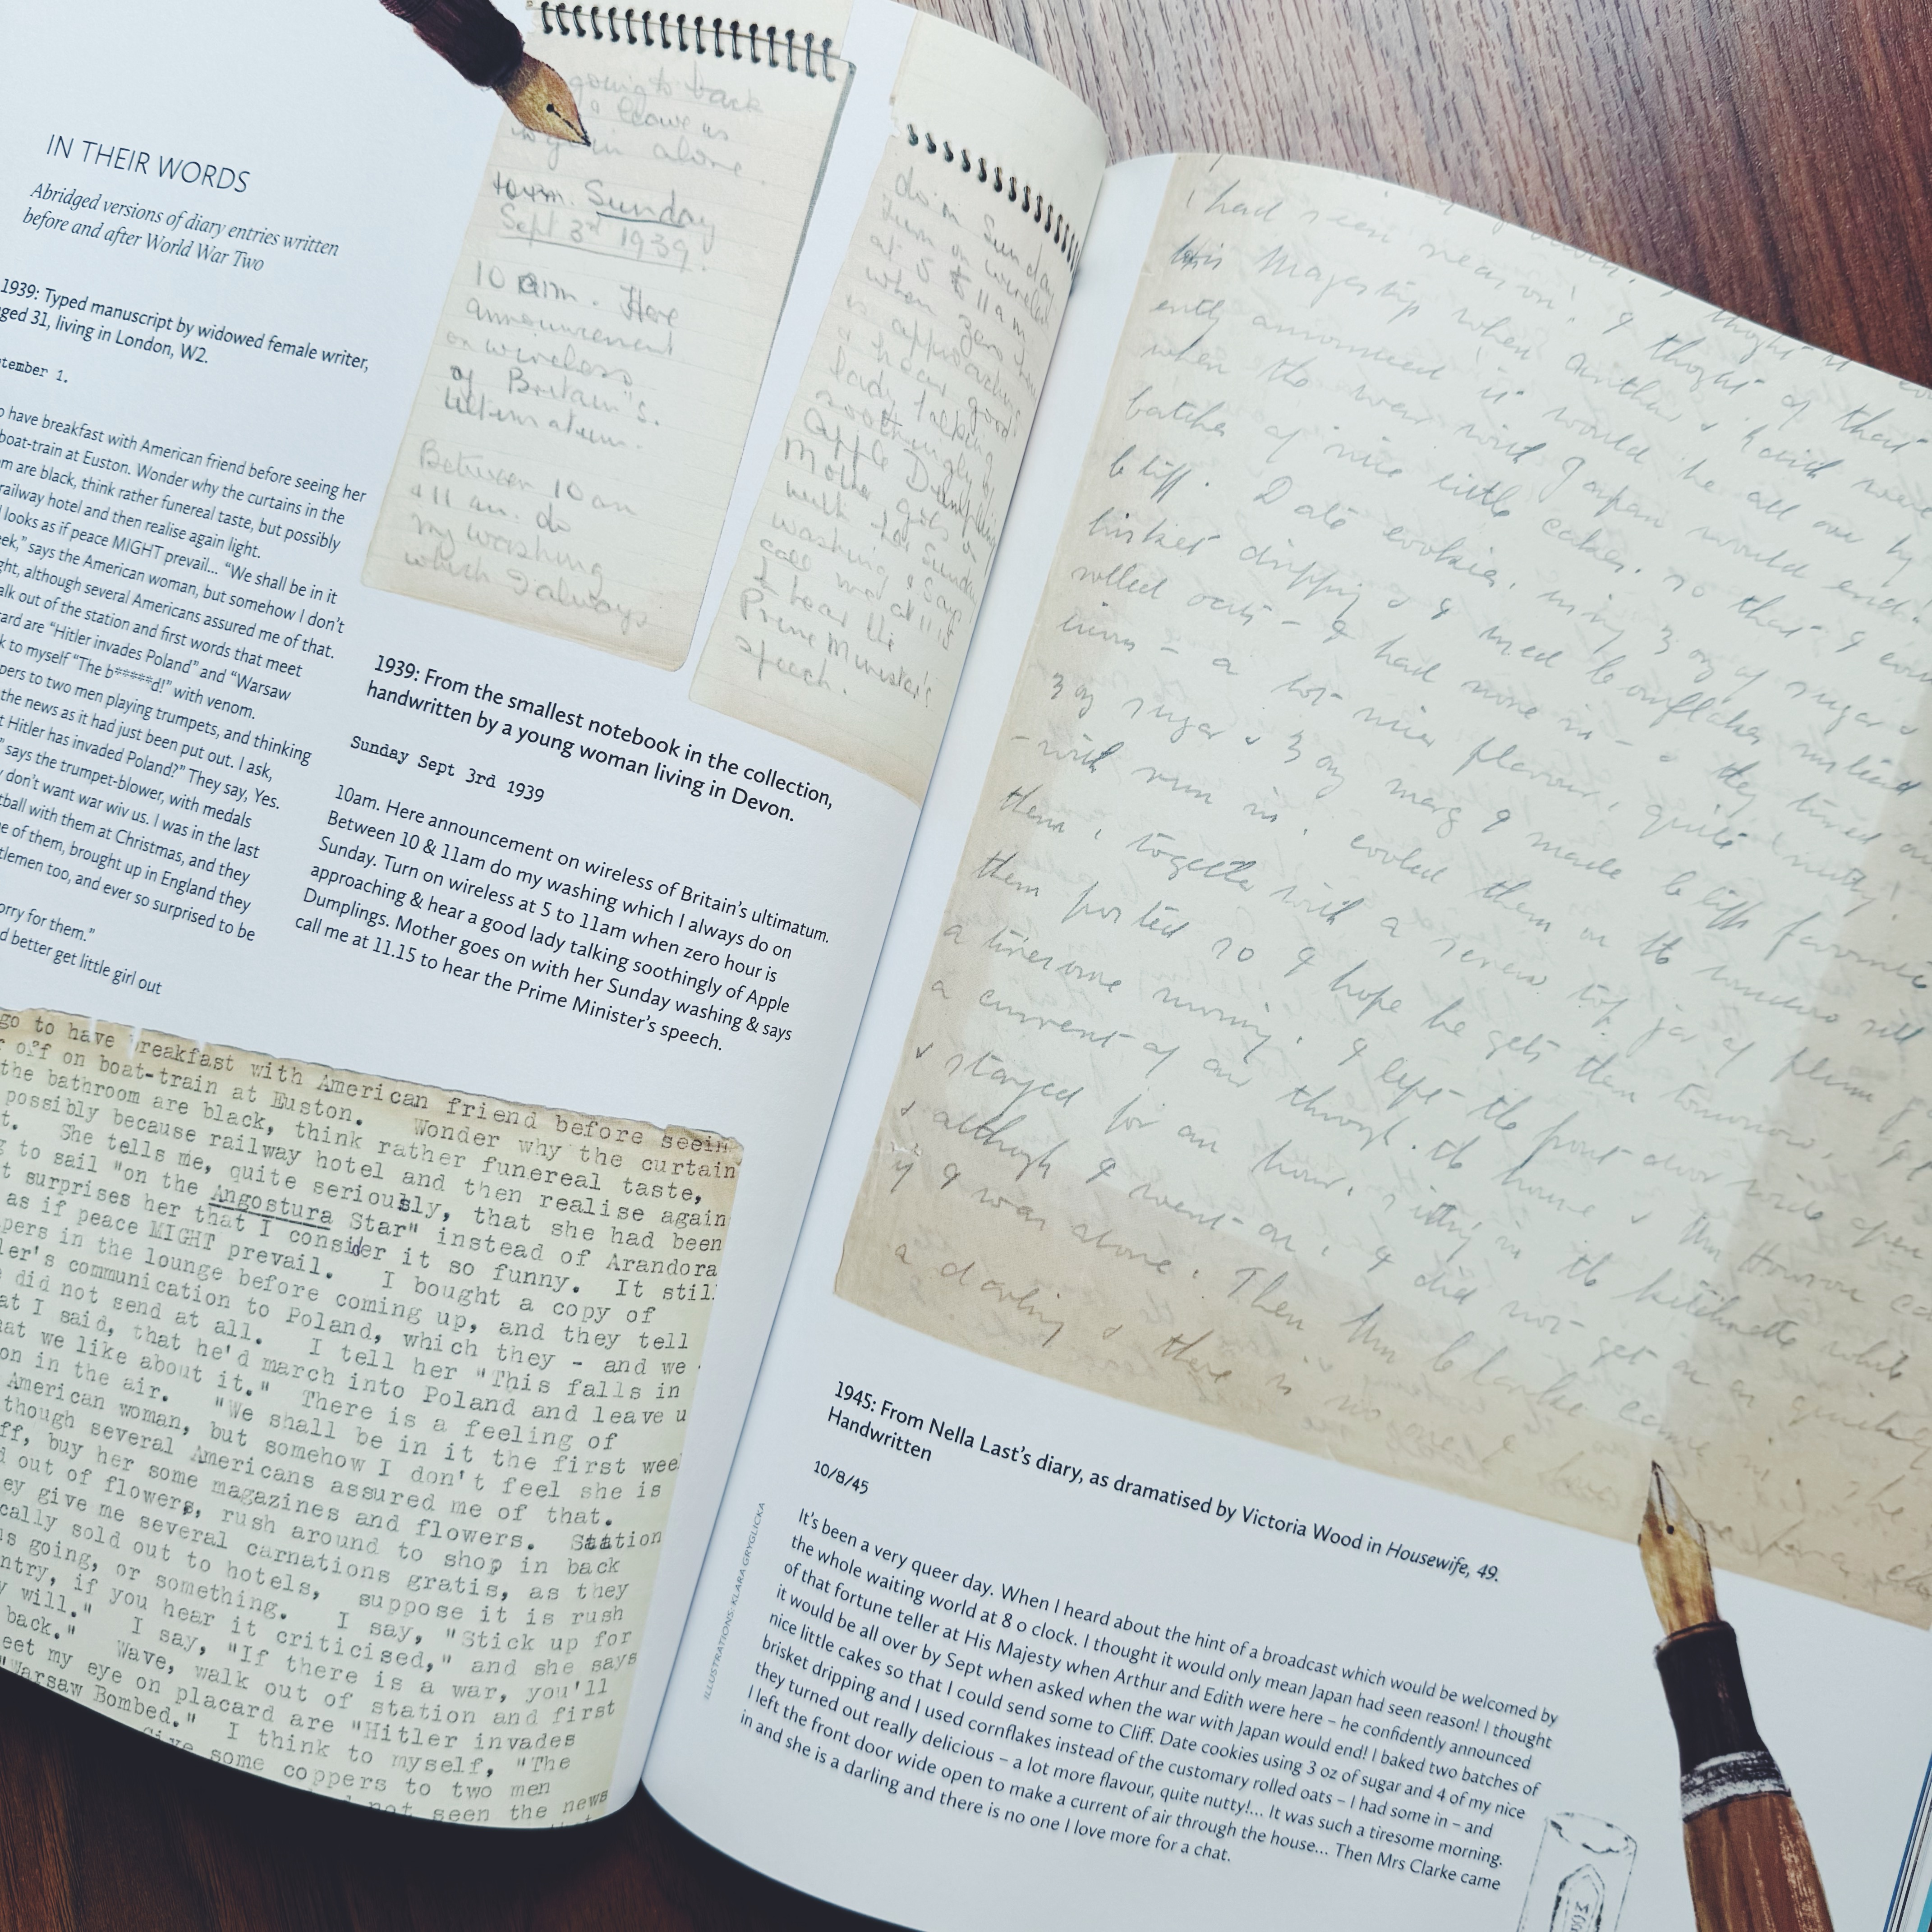 IN THEIR WORDS
Abridged versions of diary entries written
before and after World War Two
1939: Typed manuscript by widowed female writer,
aged 31, living in London, W2.
tember 1.
o have breakfast with American friend before seeing her
boat-train at Euston. Wonder why the curtains in the
m are black, think rather funereal taste, but possibly
railway hotel and then realise again light.
looks as if peace MIGHT prevail... “We shall be in it
eek,” says the American woman, but somehow I don’t
ght, although several Americans assured me of that.
alk out of the station and first words that meet
ard are “Hitler invades Poland” and “Warsaw
k to myself “The b*****d!” with venom.
pers to two men playing trumpets, and thinking
the news as it had just been put out. I ask,
t Hitler has invaded Poland?” They say, Yes.
” says the trumpet-blower, with medals
y don’t want war wiv us. I was in the last
tball with them at Christmas, and they
e of them, brought up in England they
tlemen too, and ever so surprised to be
orry for them.”
d better get little girl out
go to have breakfast with American friend before seein
off on boat-train at Euston. Wonder why the curtain
the bathroom are black, think rather funereal taste,
possibly because railway hotel and then realise again
t. She tells me, quite seriously, that she had been
g to sail "on the Angostura Star" instead of Arandora
t surprises her that I consider it so funny. It still
as if peace MIGHT prevail. I bought a copy of
pers in the lounge before coming up, and they tell
ler's communication to Poland, which they - and we
did not send at all. I tell her "This falls in
at I said, that he'd march into Poland and leave u
hat we like about it." There is a feeling of
on in the air. "We shall be in it the first wee
American woman, but somehow I don't feel she is
though several Americans assured me of that.
ff, buy her some magazines and flowers. Station
d out of flowers, rush around to shop in back
ey give me several carnations gratis, as they
cally sold out to hotels, suppose it is rush
us going, or something. I say, "Stick up for
ntry, if you hear it criticised," and she says
y will." I say, "If there is a war, you'll
back." Wave, walk out of station and first
eet my eye on placard are "Hitler invades
"Warsaw Bombed." I think to myself, "The
Give some coppers to two men
not seen the news
going to back
leave us
alone.
Sunday
Sept 3rd 1939.
10 am. Here
announcement
on wireless
of Britain's
ultimatum.
Between 10 am
& 11 am. do
my washing
which I always
do on Sunday
turn on wireless
at 5 to 11 am
when zero hour
is approaching
& hear good
lady talking
soothingly of
Apple Dumplings
Mother goes on
with her Sunday
washing & says
call me at 11.15
to hear the
Prime Minister's
speech.
1939: From the smallest notebook in the collection,
handwritten by a young woman living in Devon.
Sunday Sept 3rd 1939
10am. Here announcement on wireless of Britain’s ultimatum.
Between 10 & 11am do my washing which I always do on
Sunday. Turn on wireless at 5 to 11am when zero hour is
approaching & hear a good lady talking soothingly of Apple
Dumplings. Mother goes on with her Sunday washing & says
call me at 11.15 to hear the Prime Minister’s speech.
I had seen reason! I thought
his Majestys when Arthur & Edith were
ently announced it would be all over by
when the war with Japan would end!
batches of nice little cakes, so that I could
Cliff. Date cookies, using 3 oz of sugar &
brisket dripping & I used cornflakes instead
rolled oats – I had some in – & they turned
– a lot nicer flavour, quite nutty!
3 oz sugar & 3 oz marg I made Cliffs favourite
– with rum in, cooked them in the
them, together with a screw top jar of plum
them posted so I hope he gets them tomorrow,
a tiresome morning, I left the front door wide open
a current of air through the house & Mrs Howson
& stayed for an hour, sitting in the kitchenette while
& although I went on, I did not get on as quickly
if I was alone. Then Mrs Clarke came in, she
a darling & there is no one I
1945: From Nella Last’s diary, as dramatised by Victoria Wood in Housewife, 49.
Handwritten
10/8/45
It’s been a very queer day. When I heard about the hint of a broadcast which would be welcomed by
the whole waiting world at 8 o clock. I thought it would only mean Japan had seen reason! I thought
of that fortune teller at His Majesty when Arthur and Edith were here – he confidently announced
it would be all over by Sept when asked when the war with Japan would end! I baked two batches of
nice little cakes so that I could send some to Cliff. Date cookies using 3 oz of sugar and 4 of my nice
brisket dripping and I used cornflakes instead of the customary rolled oats – I had some in – and
they turned out really delicious – a lot more flavour, quite nutty!... It was such a tiresome morning.
I left the front door wide open to make a current of air through the house... Then Mrs Clarke came
in and she is a darling and there is no one I love more for a chat.
ILLUSTRATIONS: KLARA GRYGLICKA